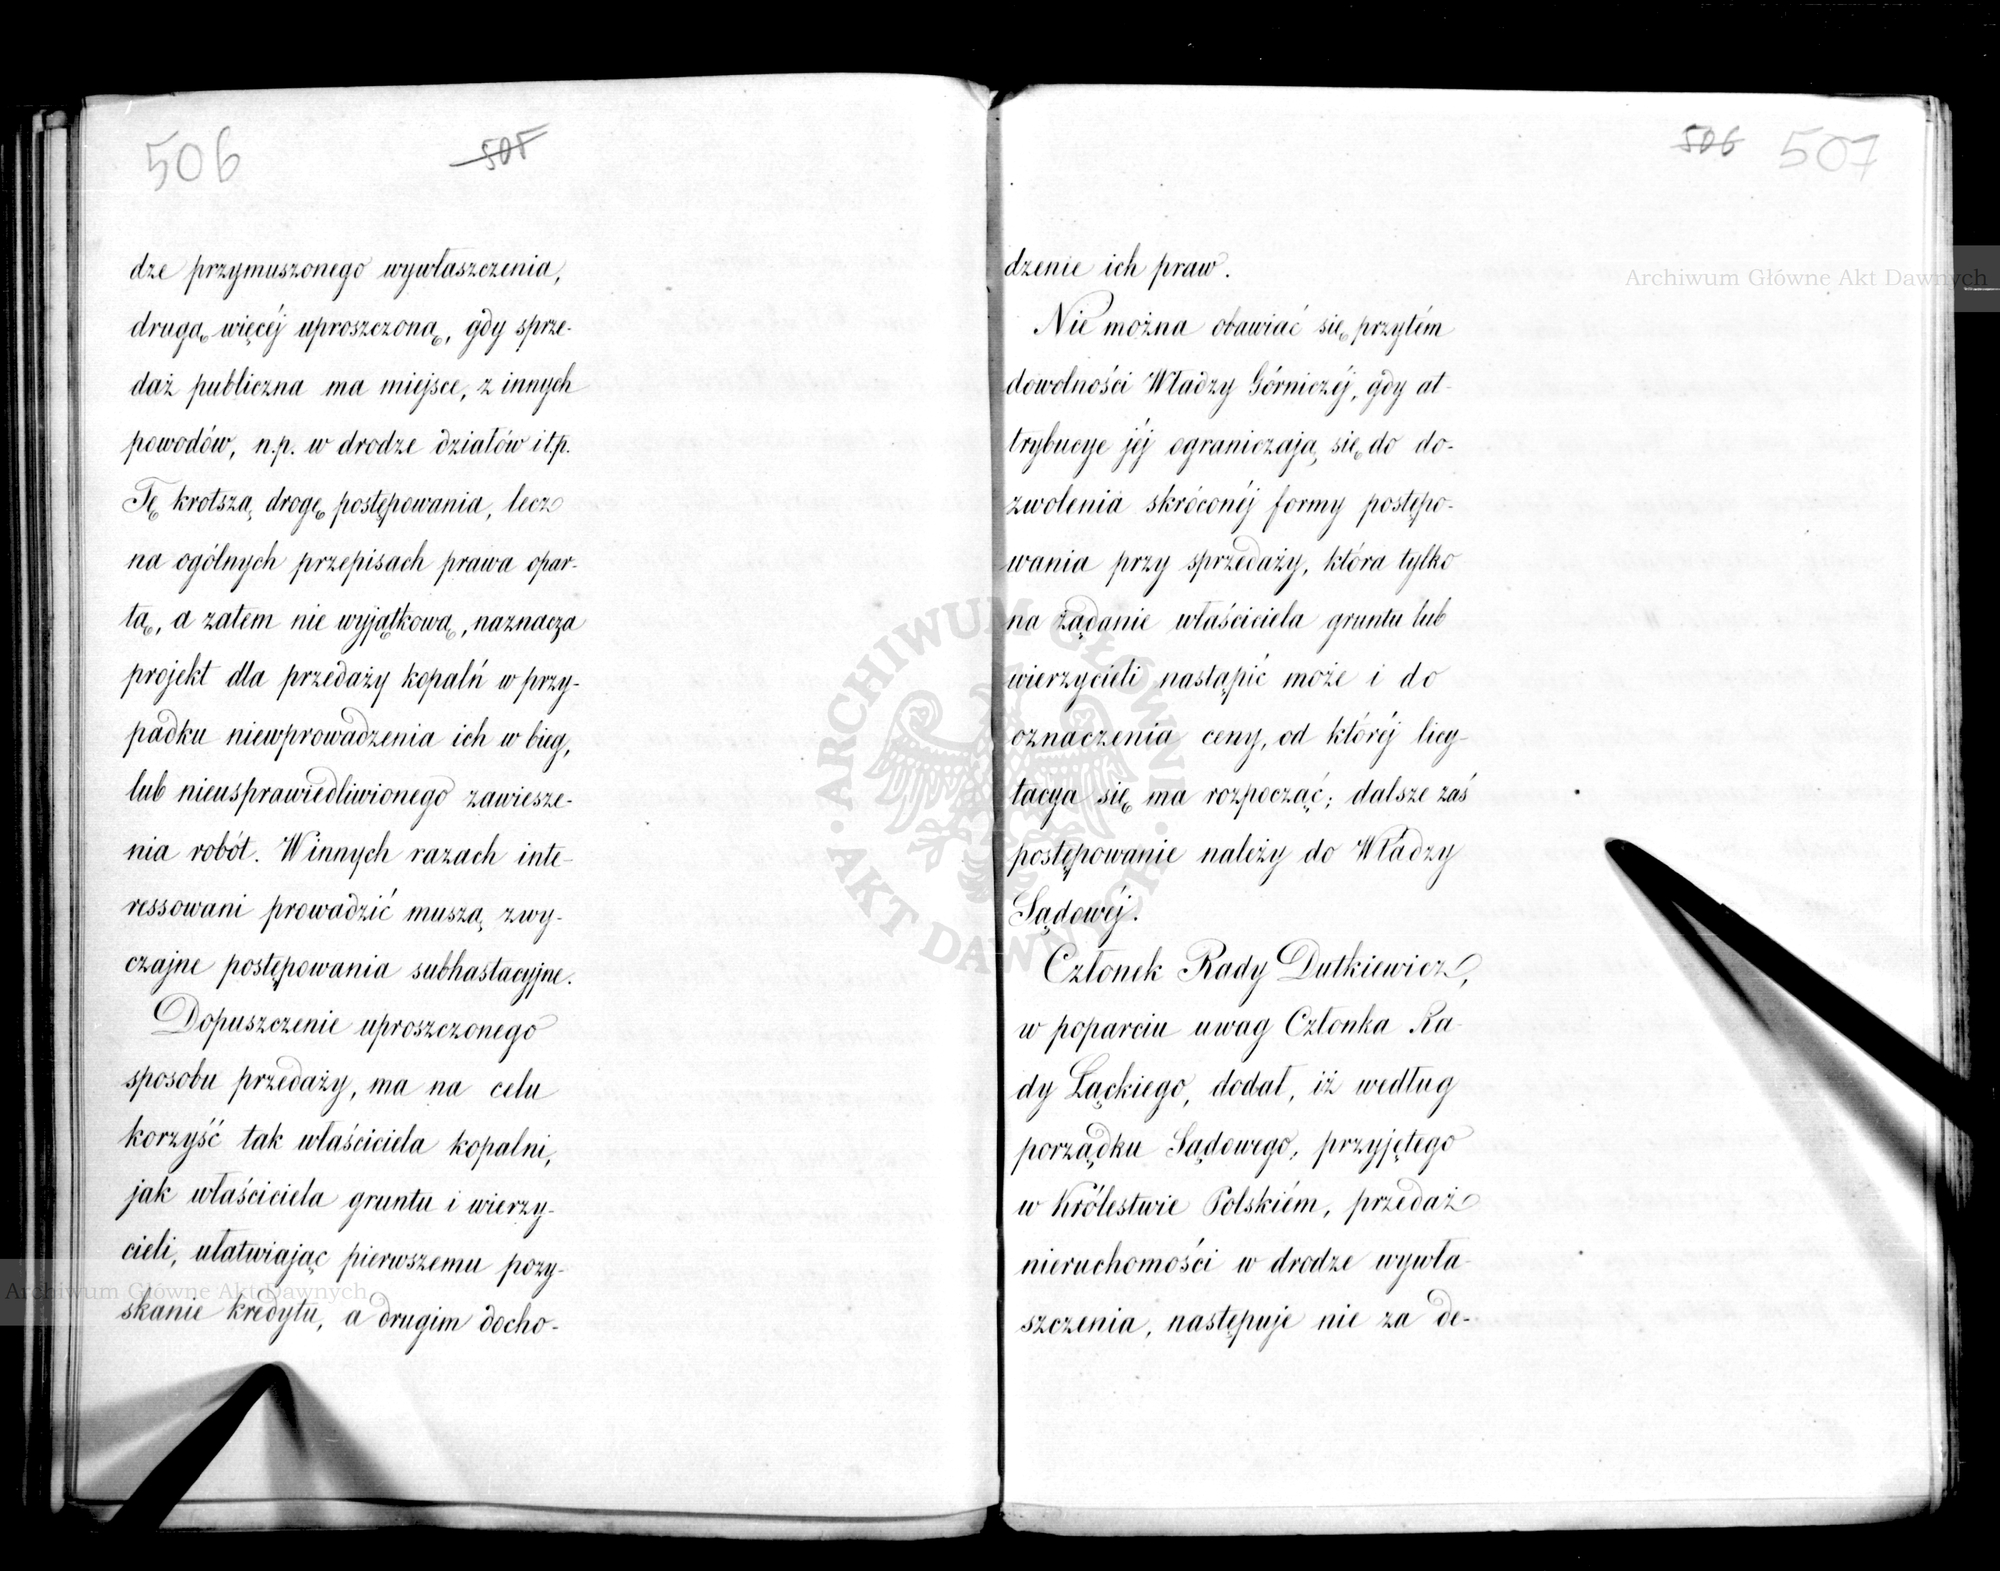 506 505
dze przymuszonego wywłaszczenia,
drugą więcéj uproszczoną, gdy sprze-
daż publiczna ma miejsce, z innych
powodów, n.p. w drodze działów itp.
Tę krotszą drogę postępowania, lecz
na ogólnych przepisach prawa opar-
tą, a zatem nie wyjątkową, naznacza
projekt dla przedaży kopalń w przy-
padku niewprowadzenia ich w bieg,
lub nieusprawiedliwionego zawiesze-
nia robót. W innych razach inte-
ressowani prowadzić muszą zwy-
czajne postępowania subhastacyjne.
Dopuszczenie uproszczonego
sposobu przedaży, ma na celu
korzyść tak właściciela kopalni,
jak właściciela gruntu i wierzy-
cieli, ułatwiając pierwszemu pozy-
skanie kredytu, a drugim docho-
506 507
dzenie ich praw.
Nie można obawiać się przytém
dowolności Władzy Górniczéj, gdy at-
trybucye jéj ograniczają się do do-
zwolenia skróconéj formy postępo-
wania przy sprzedaży, która tylko
na żądanie właściciela gruntu lub
wierzycieli nastąpić może i do
oznaczenia ceny, od któréj licy-
tacya się ma rozpocząć; dalsze zaś
postępowanie należy do Władzy
Sądowéj.
Członek Rady Dutkiewicz,
w poparciu uwag Członka Ra-
dy Łąckiego, dodał, iż według
porządku Sądowego, przyjętego
w Królestwie Polskiém, przedaż
nieruchomości w drodze wywła-
szczenia, następuje nie za de-
Archiwum Główne Akt Dawnych
Archiwum Główne Akt Dawnych
ARCHIWUM GŁÓWNE · AKT DAWNYCH ·